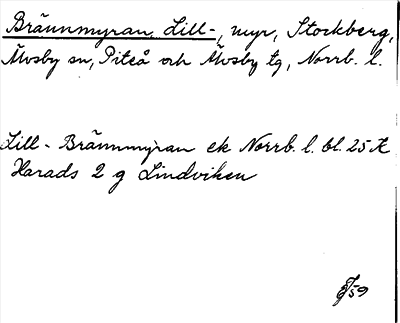 Brännmyran, Lill-, myr, Stockberg,
Älvsby sn, Piteå och Älvsby tg, Norrb. l.
Lill-Brännmyran ek Norrb. l. bl. 25 K
Harads 2 g Lindviken
59